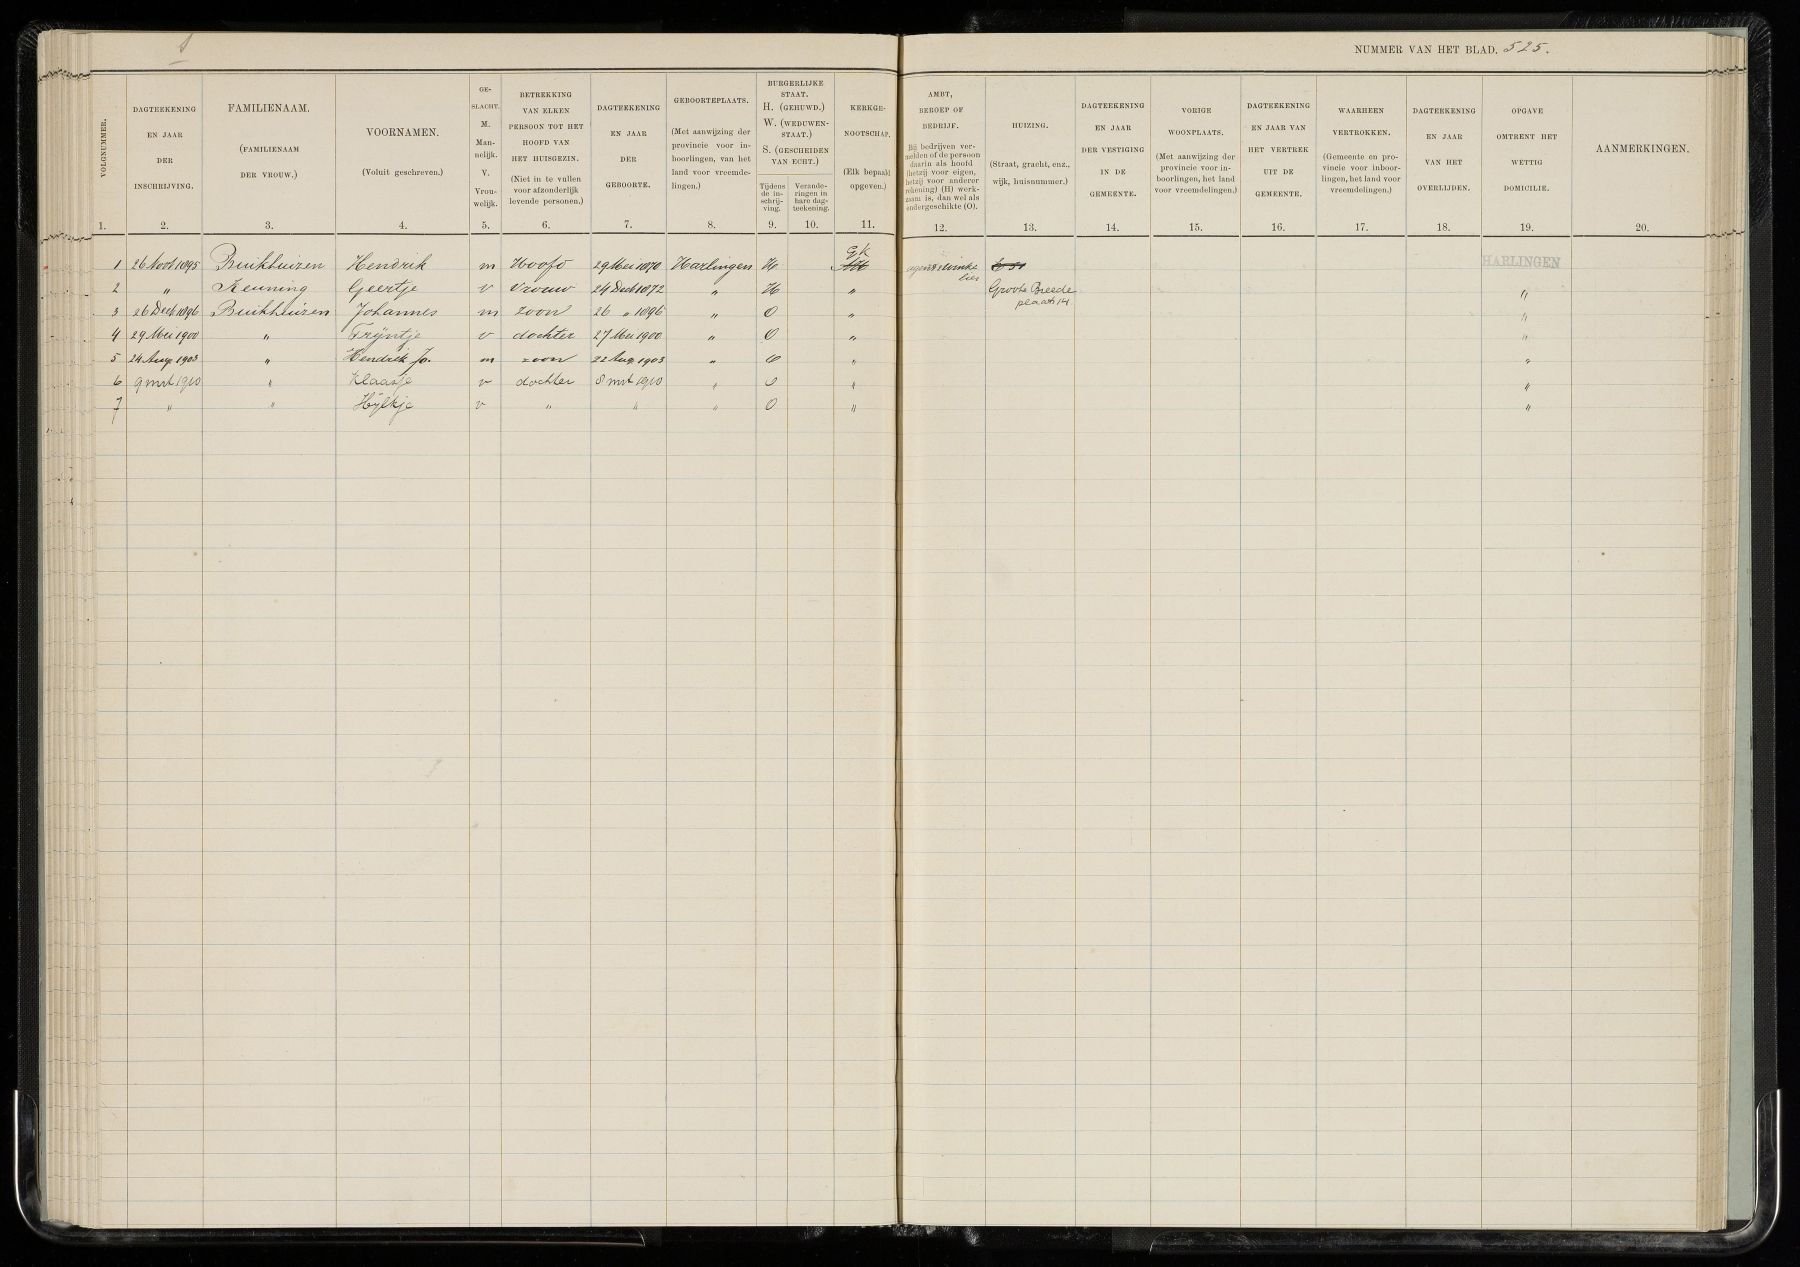 NUMMER VAN HET BLAD. 525.
VOLGNUMMER. 1.
DAGTEEKENING EN JAAR DER INSCHRIJVING. 2.
FAMILIENAAM. (FAMILIENAAM DER VROUW.) 3.
VOORNAMEN. (Voluit geschreven.) 4.
GE-SLACHT. M. Man-nelijk. V. Vrou-welijk. 5.
BETREKKING VAN ELKEN PERSOON TOT HET HOOFD VAN HET HUISGEZIN. (Niet in te vullen voor afzonderlijk levende personen.) 6.
DAGTEEKENING EN JAAR DER GEBOORTE. 7.
GEBOORTEPLAATS. (Met aanwijzing der provincie voor in-boorlingen, van het land voor vreemde-lingen.) 8.
BURGERLIJKE STAAT. H. (GEHUWD.) W. (WEDUWEN-STAAT.) S. (GESCHEIDEN VAN ECHT.)
Tijdens de in-schrij-ving. 9.
Verande-ringen in bare dag-teekening. 10.
KERKGE-NOOTSCHAP. (Elk bepaald opgeven.) 11.
AMBT, BEROEP OF BEDRIJF. Bij bedrijven ver-melden of de persoon daarin als hoofd (hetzij voor eigen, hetzij voor anderer rekening) (H) werk-zaam is, dan wel als ondergeschikte (O). 12.
HUIZING. (Straat, gracht, enz., wijk, huisnummer.) 13.
DAGTEEKENING EN JAAR DER VESTIGING IN DE GEMEENTE. 14.
VORIGE WOONPLAATS. (Met aanwijzing der provincie voor in-boorlingen, het land voor vreemdelingen.) 15.
DAGTEEKENING EN JAAR VAN HET VERTREK UIT DE GEMEENTE. 16.
WAARHEEN VERTROKKEN. (Gemeente en pro-vincie voor inboor-lingen, het land voor vreemdelingen.) 17.
DAGTEEKENING EN JAAR VAN HET OVERLIJDEN. 18.
OPGAVE OMTRENT HET WETTIG DOMICILIE. 19.
AANMERKINGEN. 20.
1 26 Novb 1895 Buikhuizen Hendrik m Hoofd 29 Mei 1870 Harlingen H Gk agent winke lier HARLINGEN
2 " Keuning Geertje v Vrouw 24 Decb 1872 " H " Groote Breede plaats 14 "
3 26 Decb 1896 Buikhuizen Johannes m zoon 26 " 1896 " O " "
4 29 Mei 1900 " Trijntje v dochter 27 Mei 1900 " O " "
5 24 Aug 1903 " Hendrik Jo. m zoon 22 Aug 1903 " O " "
6 9 mrt 1910 " Klaasje v dochter 8 mrt 1910 " O " "
7 " " Hijlkje v " " " O " "